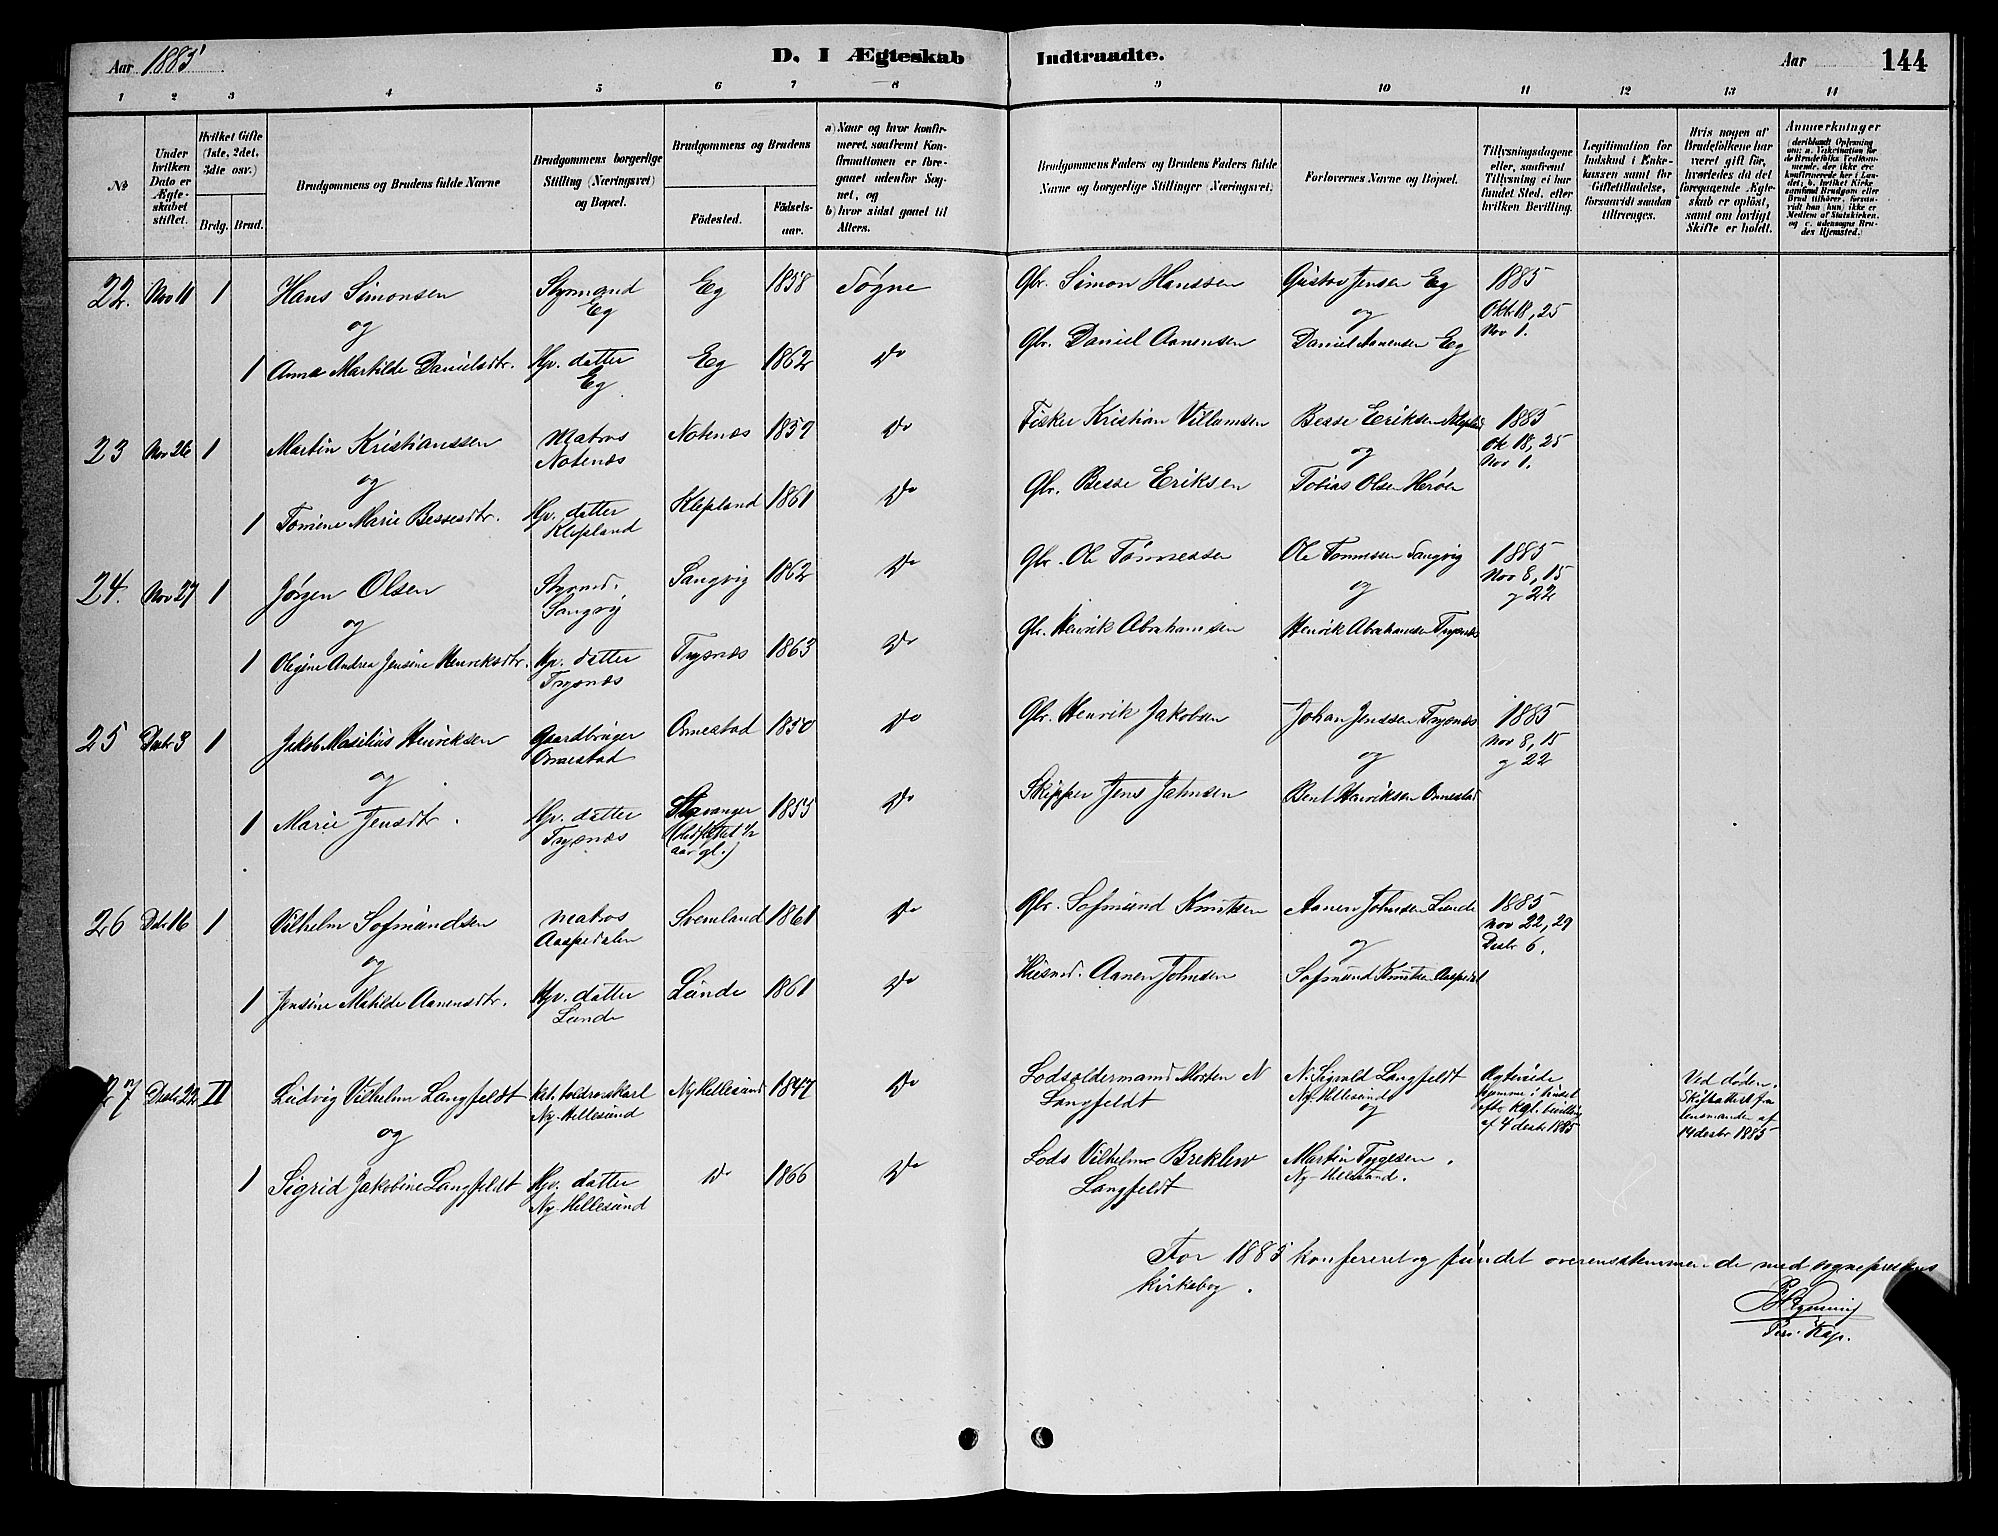 Aar 1885
D. I Ægteskab Indtraadte.
Aar
144
1 2 3 4 5 6 7 8 9 10 11 12 13 14
No
Under hvilken Dato er Ægteskabet stiftet.
Hvilket Gifte (1ste, 2det, 3die osv.)
Brdg. Brud.
Brudgommens og Brudens fulde Navne
Brudgommens borgerlige Stilling (Næringsvei) og Bopæl.
Brudgommens og Brudens
Födested.
Födselsaar.
a) Naar og hvor konfirmeret, saafremt Konfirmationen er foregaaet udenfor Sognet, og
b) hvor sidst gaaet til Alters.
Brudgommens Faders og Brudens Faders fulde Navne og borgerlige Stillinger (Næringsvei).
Forlovernes Navne og Bopæl.
Tillysningsdagene eller, saafremt Tillysning ei har fundet Sted, efter hvilken Bevilling.
Legitimation for Indskud i Enkekassen samt for Giftetilladelse, forsaavidt saadan tiltrænges.
Hvis nogen af Brudefolkene har været gift för, hvorledes da det foregaaende Ægteskab er oplöst, samt om lovligt Skifte er holdt.
Anmærkninger
22. Nov 11 1 Hans Simonsen Styrmand Eg Eg 1858 Søgne Gbr. Simon Hanssen Gustav Jensen Eg 1885 Oktb 18, 25 Nov 1.
og
og
1 Anna Martilde Danielsdtr. Hp. datter Eg Eg 1862 Do Gbr. Daniel Aanensen Daniel Aanensen Eg
23 Nov 26 1 Martin Kristianssen Matros Notenæs Notenæs 1857 Do Fisker Kristian Villumsen Besse Eriksen Klepland 1885 Ok 18, 25 Nov 1.
og
og
1 Tomine Marie Bessesdtr. Hp. datter Klepland Klepland 1861 Do Gbr. Besse Eriksen Tobias Olsen Herøen
24. Nov 27 1 Jørgen Olsen Styrmd. Sangvig Sangvig 1862 Do Gbr. Ole Tønnessen Ole Tønnessen Sangvig 1885 Nov 8, 15 og 22
og
og
1 Oligine Andrea Jensine Henriksdtr. Hp. datter Trysnæs Trysnæs 1863 Do Gbr. Henrik Abrahamsen Henrik Abrahamsen Trysnæs
25 Desbr 3 1 Jakob Masilius Henriksen Gaardbruger Ormestad Ormestad 1850 Do Gbr. Henrik Jakobsen Johan Jenssen Trysnæs 1885 Nov 8, 15 og 22
og
og
1 Marie Jensdtr. Hp. datter Trysnæs Stavanger (hidflyttet 1/2 aar gl.) 1855 Do Skipper Jens Jahnsen Bent Henriksen Ormestad
26 Desbr 16 1 Vilhelm Sofmundsen Matros Aaspedalen Svenland 1861 Do Gbr. Sofmund Knutsen Aanen Johnsen Lunde 1885 Nov 22, 29 Desbr 6.
og
og
1 Jensine Matilde Aanensdtr. Hp. datter Lunde Lunde 1861 Do Husmd. Aanen Johnsen Sofmund Knutsen Aaspedal
27 Desbr 22 II Ludvig Vilhelm Langfeldt Ny-Hellesund Ny Hellesund 1847 Do Lodsoldermand Morten N Langfeldt N. Sigvald Langfeldt Ny-Hellesund Ægteviede hjemme i huset efter kgl. bevilling af 4 desbr 1885 Ved døden. Skifteattest fra lensmanden af 14 desbr 1885
og
og
1 Sigrid Jakobine Langfeldt Hp. datter Ny-Hellesund Do 1866 Do Lods Vilhelm Langfeldt Martin Tygesen Ny-Hellesund.
For 1885 konfereret og fundet overensstemmende med sogneprestens
kirkebog.
Pers. Kap.